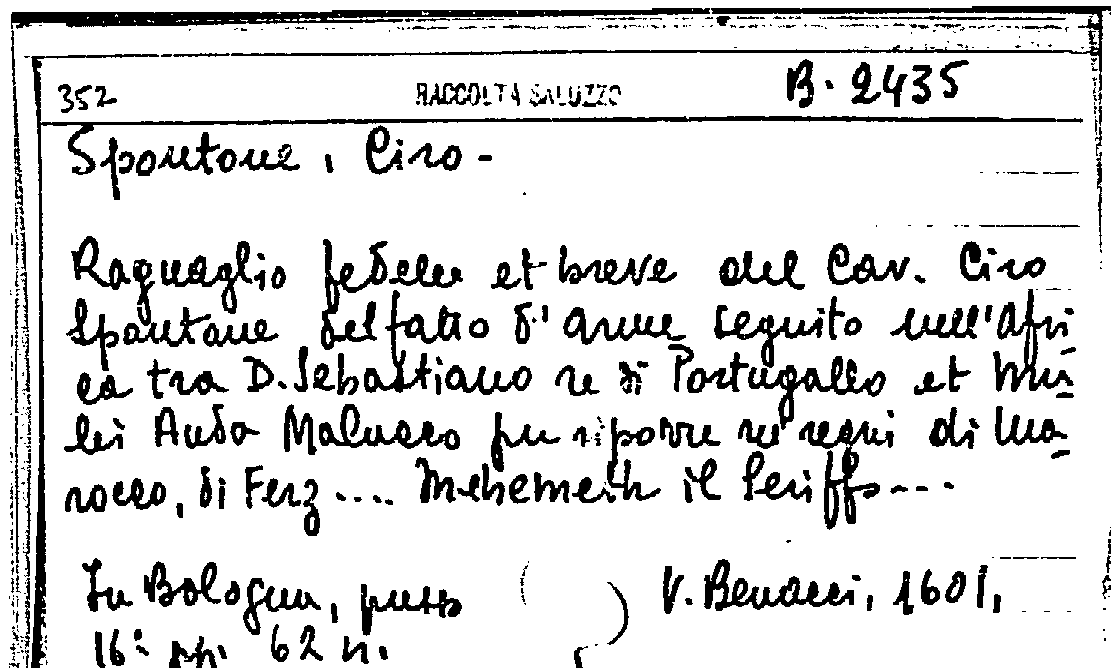 352 RACCOLTA SALUZZO B. 2435
Spontone, Ciro -
Raguaglio fedele et breve del Cav. Ciro
Spontone del fatto d'arme seguito nell'Afri-
ca tra D. Sebastiano re di Portugallo et Mu-
lei Auda Malucco per riporre ne' regni di Ma-
rocco, di Ferz .... Mehemeth il Seriffo ---
In Bologna, presso V. Benacci, 1601,
16° pp. 62 n.